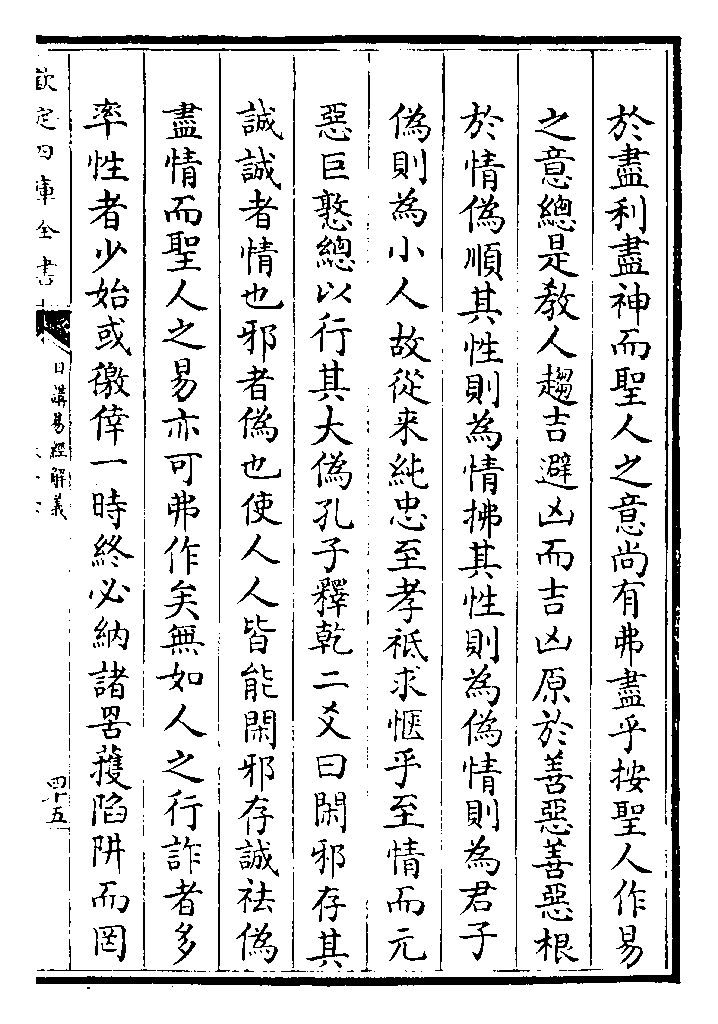 於盡利盡神而聖人之意尚有弗盡乎按聖人作易
之意總是教人趨吉避凶而吉凶原於善惡善惡根
於情偽順其性則為情拂其性則為偽情則為君子
偽則為小人故從来純忠至孝祗求愜乎至情而元
惡巨憝總以行其大偽孔子釋乾二爻曰閑邪存其
誠誠者情也邪者偽也使人人皆能閑邪存誠袪偽
盡情而聖人之易亦可弗作矣無如人之行詐者多
率性者少始或徼倖一時終必納諸罟擭陷阱而罔
欽定四庫全書
日講易經解義
四十五